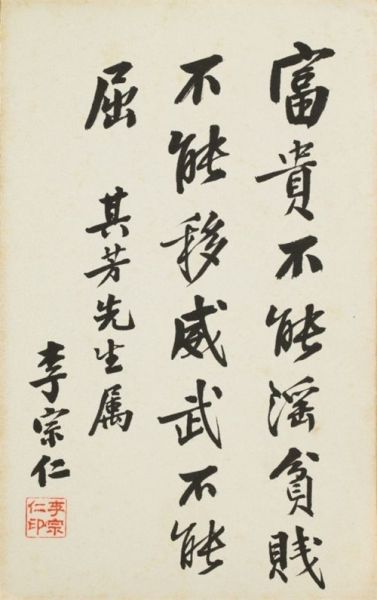 富貴不能淫貧賤
不能移威武不能
屈
其芳先生属
李宗仁
李宗
仁印